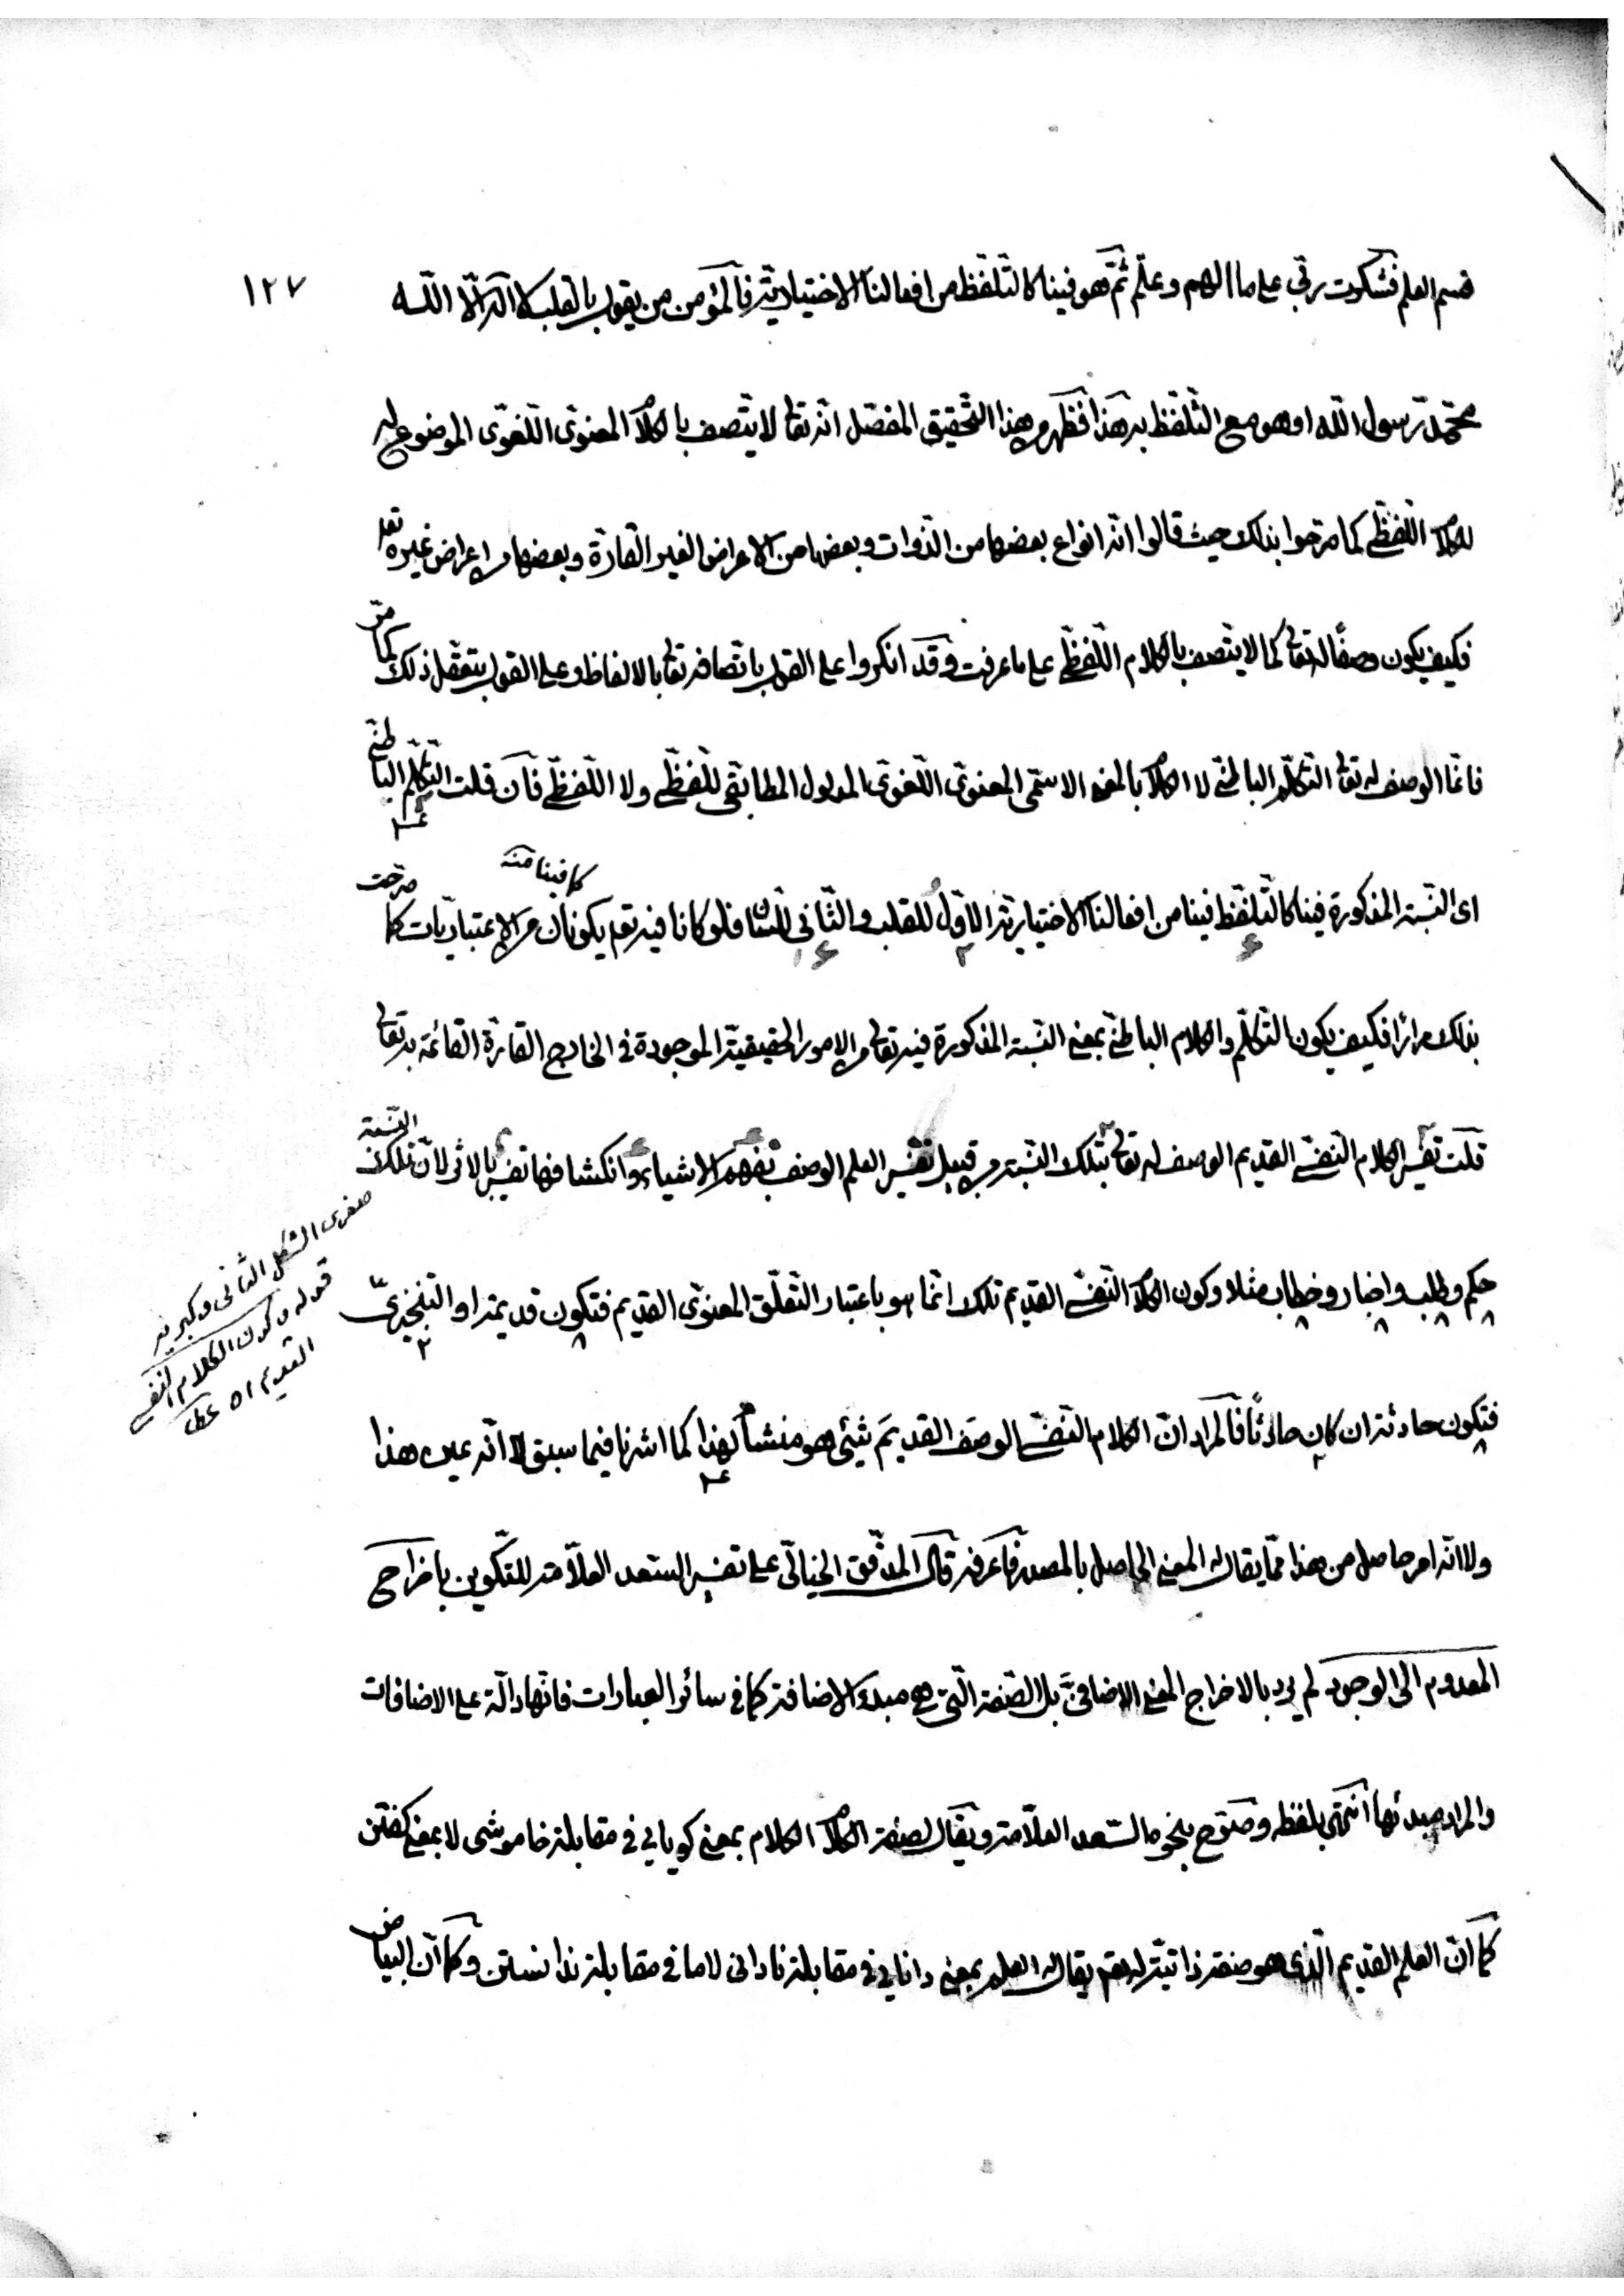 ١٢٧
قسم العلم فشكرت ربّي على ما الهم وعلّم ثمّ هو فينا كالتّلفّظ من افعالنا الاختياريّة فالمؤمن من يقول بالقلب لا اله الّا اللّه
محمّد رسول اللّه او هو مع التّلفّظ به هذا فظهر من هذا التّحقيق المفصّل انّه تعالى لا يتّصف بالكلام المعنوىّ اللّغوىّ الموضوع له
للكلام اللّفظىّ كما صرّحوا بذلك حيث قالوا انّه انواع بعضها من الذّوات وبعضها من الاعراض الغير القارّة وبعضها من اعراض غيره تع
فكيف يكون وصفًا له تعالى كما لا يتّصف بالكلام اللّفظىّ على ما عرفت وقد انكروا على القول باتّصافه تعالى بالالفاظ وعلى القول بتعقّل ذلك كما مرّ
فانّما الوصف له تعالى التّكلّم الباطنىّ لا الكلام بالمعنى الاسمى المعنوىّ اللّغوىّ المدلول المطابقى للّفظىّ ولا اللّفظىّ فان قلت التّكلّم الباطنىّ
اى النّسبة المذكورة فينا كالتّلفّظ فينا من افعالنا الاختياريّة الاوّل للقلب والثّانى للّسان فلو كانا فيه تع يكونان من الاعتباريّات كما صرّحت
كما فينا منه
بذلك مرارًا فكيف يكون التّكلّم والكلام الباطنىّ بمعنى النّسبة المذكورة فيه تعالى من الامور الحقيقيّة الموجودة فى الخارج القارّة القائمة به تعالى
قلت تفسير الكلام النّفسىّ القديم الوصف له تعالى بتلك النّسبة من قبيل تفسير العلم الوصف بفهم الاشياء وانكشافها تفسير بالاثر لانّ تلك النّسبة
حكم وطلب واخبار وخطاب مثلا وكون الكلام النّفسىّ القديم تلك انّما هو باعتبار التّعلّق المعنوىّ القديم فتكون قديمة او التّنجيزىّ
صغرى الشكل الثانى وكبريه
قوله وكون الكلام النفسى
القديم اه
فتكون حادثة ان كان حادثًا فالمراد انّ الكلام النّفسىّ الوصف القديم شىء هو منشأ لهذا كما اشرنا فيما سبق لا انّه عين هذا
ولا انّه امر حاصل من هذا ممّا يقال له المعنى الحاصل بالمصدر فاعرفه قال المدقّق الخيالىّ على تفسير السّعد العلّامة للتّكوين باخراج
المعدوم الى الوجود لم يرد بالاخراج المعنى الاضافىّ بل الصّفة الّتى هى مبدء الاضافة كما فى سائر العبارات فانّها دالّة على الاضافات
والمراد مبدئها انتهى بلفظه وصرّح بنحوه السّعد العلّامة ويقال لصفة الكلام الكلام بمعنى كويايى فى مقابلة خاموشى لا بمعنى كفتن
كما انّ العلم القديم الّذى هو صفة ذاتيّة له تع يقال له العلم بمعنى دانايى فى مقابلة نادانى لا ما فى مقابلة ندانستن وكما انّ البياض